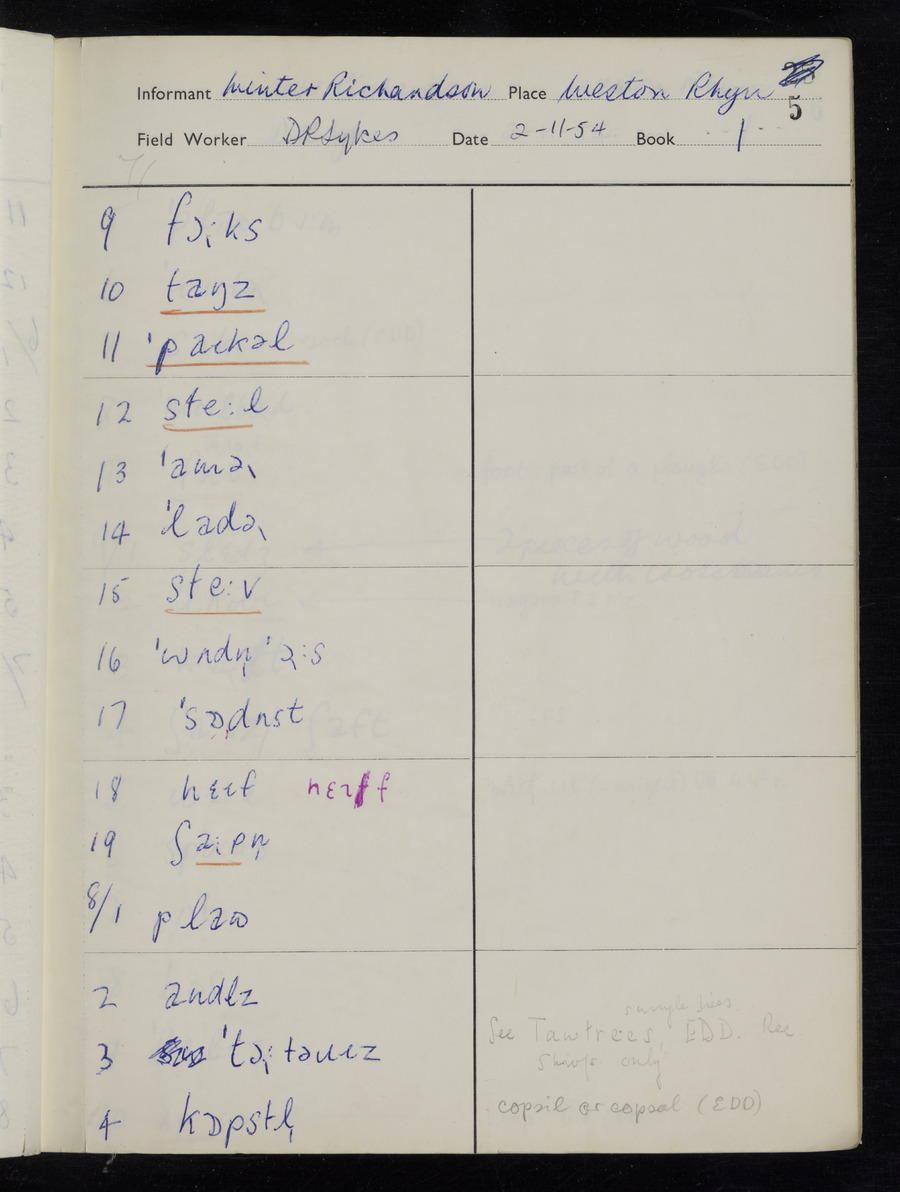 Informant Winter Richardson Place Weston Rhyn
5
Field Worker DRSykes Date 2-11-54 Book 1
9 fɔ˛:ks
10 taŋz
11 ˈpaɪkəl
12 ste:l
13 ˈamə˛
14 ˈladə˛
15 ste:v
16 ˈwɪndɪŋ ˈɔ˛:s
17 ˈsɒdɪst
18 nɛɪf nɛɪf
19 ʃa:pn̩
8/1 plaʊ
2 andlz
3 ˈtɔ˛:təɹɪz
4 kɒpstl̩
See Tawtrees, EDD. Rec
Shrops only
copsil or copsal (EDD)